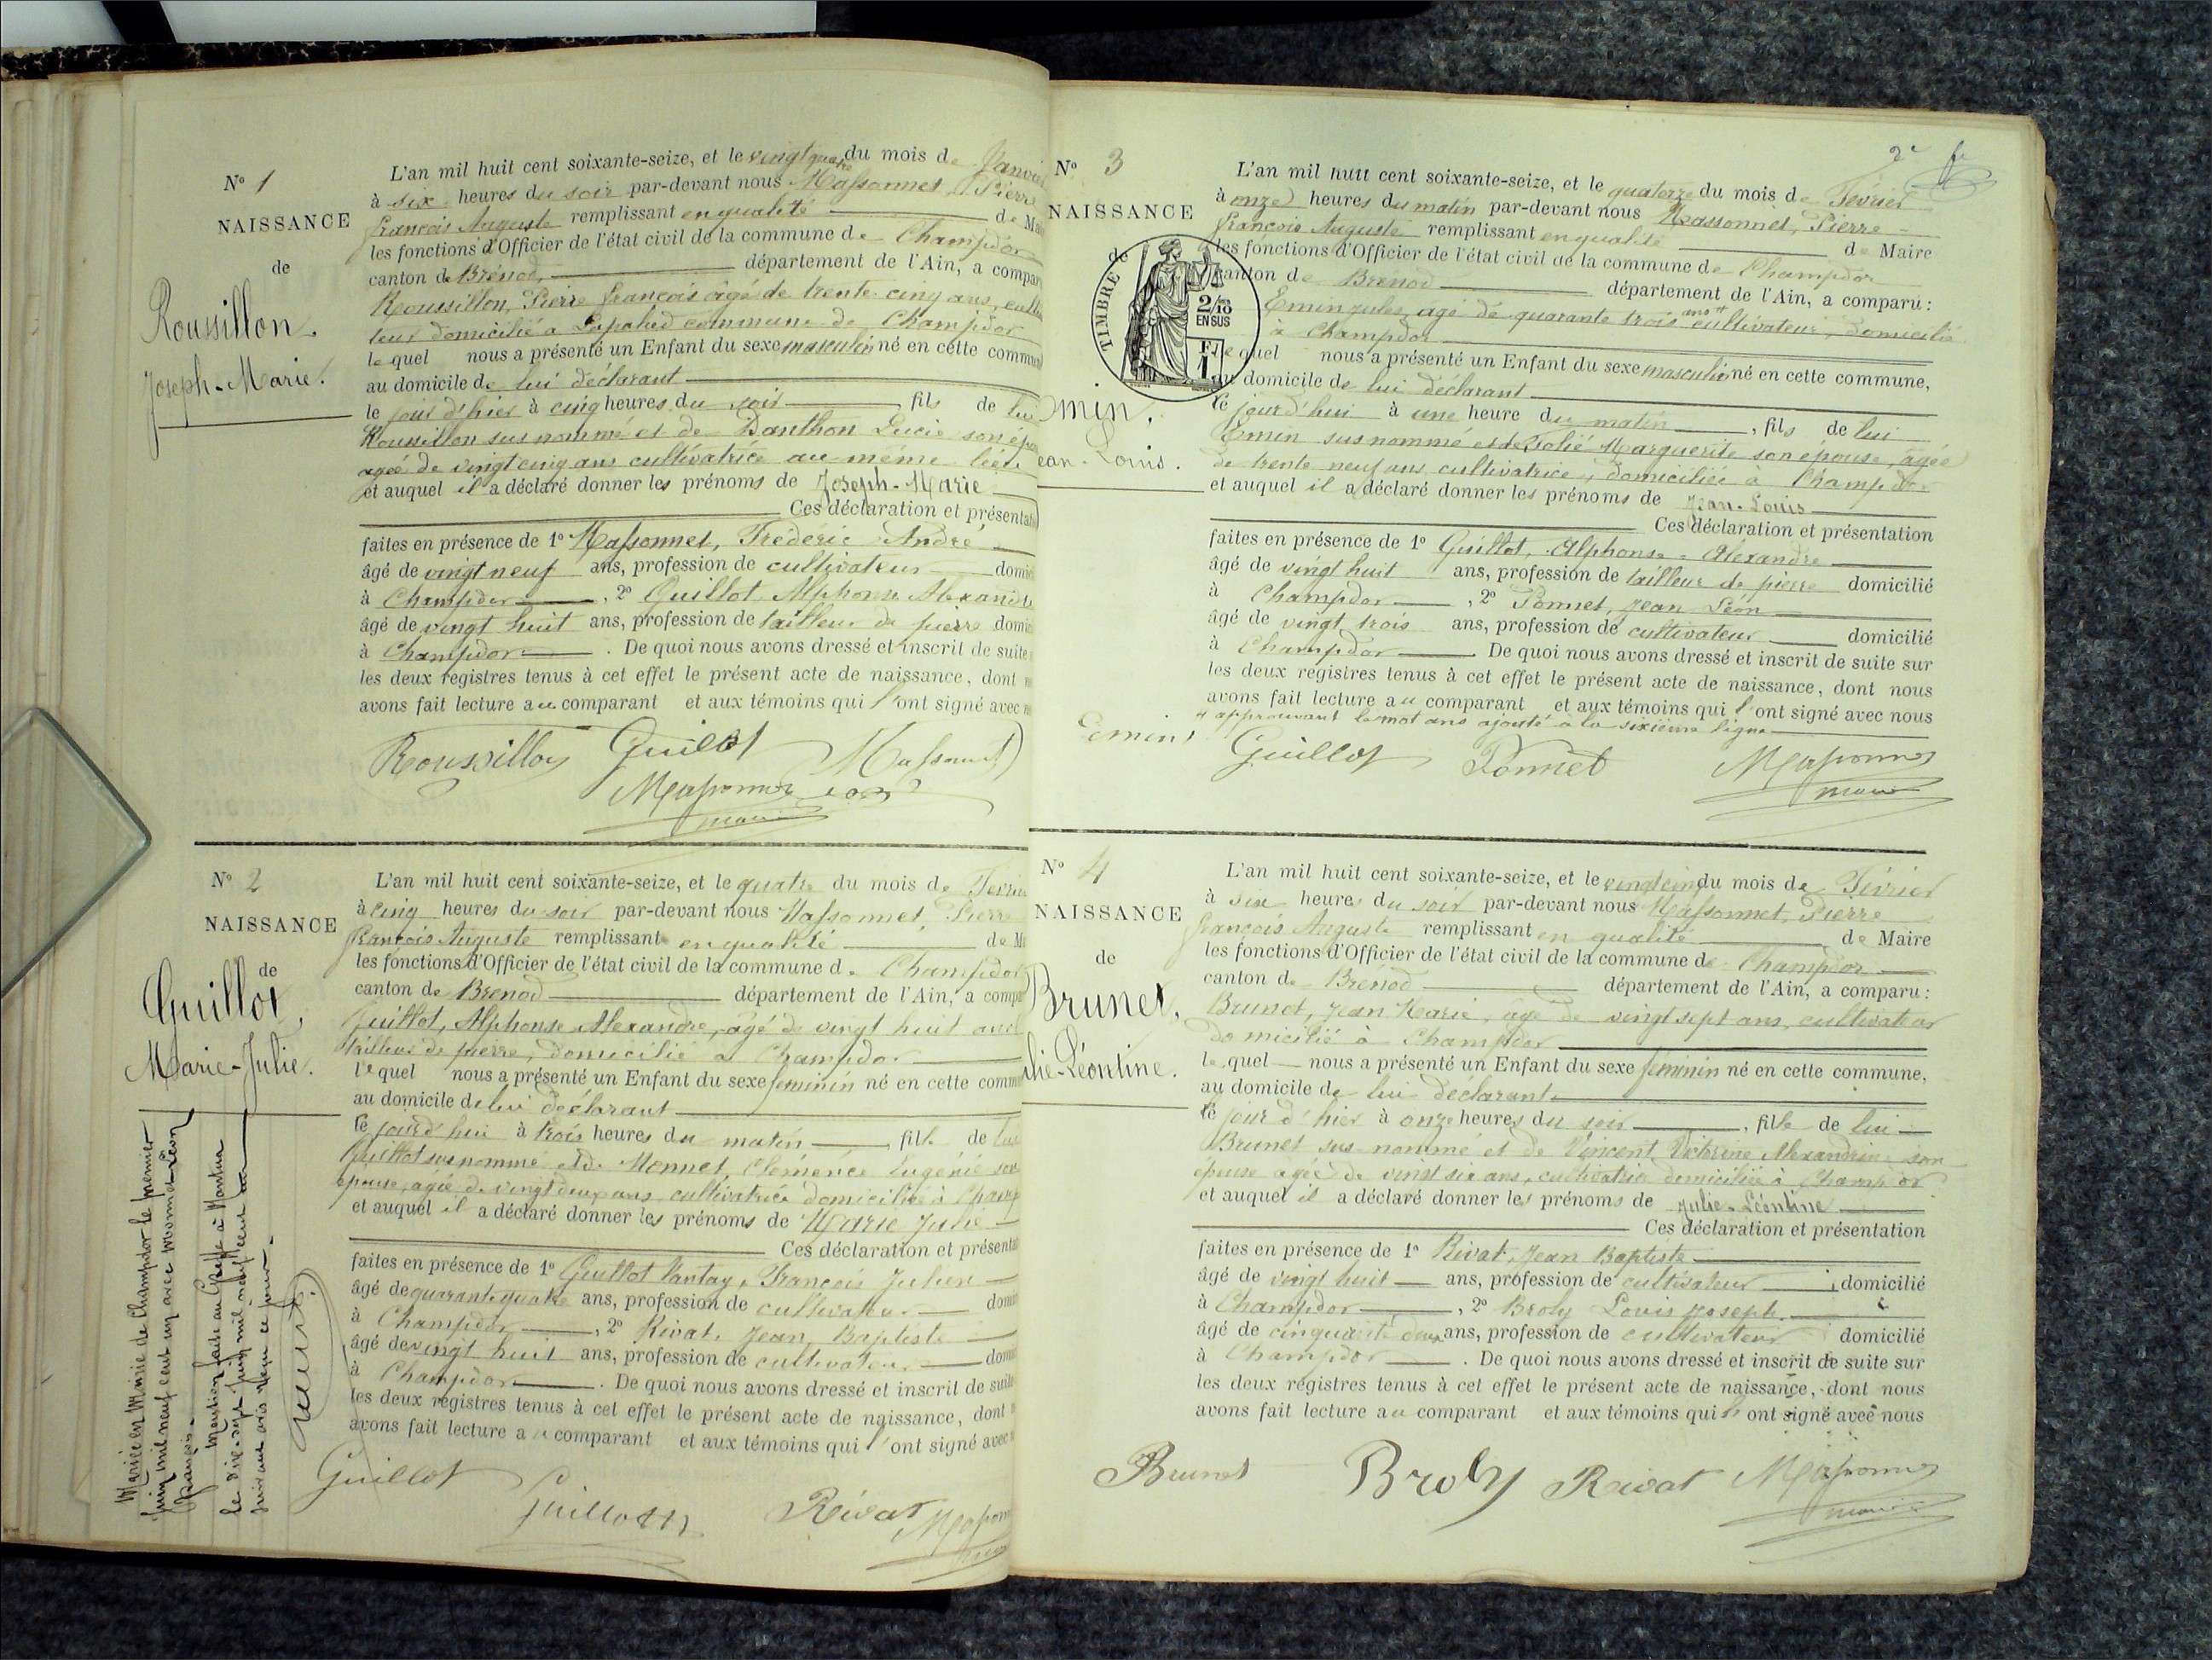 N° 1
NAISSANCE
de
Roussillon.
Joseph-Marie.
L'an mil huit cent soixante-seize, et le vingt quatre du mois de Janvier
à six heures du soir par-devant nous Massonnet, Pierre
François Auguste remplissant en qualité de Ma
les fonctions d'Officier de l'état civil de la commune de Champdor
canton de Brénod, département de l'Ain, a compar
Roussillon, Pierre François âgé de trente cinq ans, culti
teur domicilié à commune de Champdor
lequel nous a présenté un Enfant du sexe masculin né en cette commun
au domicile de lui déclarant
le jour d'hier à cinq heures du soir, fils de lui
Roussillon sus nommé et de Danthon Lucie son épou
agée de vingt cinq ans cultivatrice au même lieu
et auquel il a déclaré donner les prénoms de Joseph-Marie
Ces déclaration et présentati
faites en présence de 1° Massonnet, Frédéric André
âgé de vingt neuf ans, profession de cultivateur domici
à Champdor, 2° Guillot Alphonse Alexandre
âgé de vingt huit ans, profession de tailleur de pierre domici
à Champdor. De quoi nous avons dressé et inscrit de suite
les deux registres tenus à cet effet le présent acte de naissance, dont n
avons fait lecture au comparant et aux témoins qui l'ont signé avec n
Roussillon Guillot Massonnet
Massonnet
maire
N° 2
NAISSANCE
de
Guillot,
Marie-Julie.
L'an mil huit cent soixante-seize, et le quatre du mois de Février
à cinq heures du soir par-devant nous Massonnet, Pierre
François Auguste remplissant en qualité de Ma
les fonctions d'Officier de l'état civil de la commune de Champdor
canton de Brénod département de l'Ain, a compa
Guillot, Alphonse Alexandre, âgé de vingt huit ans
tailleur de pierre, domicilié à Champdor
lequel nous a présenté un Enfant du sexe féminin né en cette comm
au domicile de lui déclarant
le jourd'hui à trois heures du matin, fille de lui
Guillot sus nommé et de Monnet, Clémence Eugénie son
épouse, agée de vingt deux ans cultivatrice domiciliée à Champ
et auquel il a déclaré donner les prénoms de Marie Julie
Ces déclaration et présenta
faites en présence de 1° Guillot Pantay, François Julien
âgé de quarante quatre ans, profession de cultivateur domi
à Champdor, 2° Rivat, Jean Baptiste
âgé de vingt huit ans, profession de cultivateur domi
à Champdor. De quoi nous avons dressé et inscrit de suite
les deux registres tenus à cet effet le présent acte de naissance, dont
avons fait lecture au comparant et aux témoins qui l'ont signé avec
Guillot Guillot Rivat Massonnet
Mariée en Mairie de Champdor le premier
juin mil neuf cent un avec Monnet Léon
François.
Mention faite au Greffe à Nantua
le dix-sept juin mil neuf cent un
suivant avis reçu ce jour.
2e f
N° 3
NAISSANCE
de
TIMBRE
2/10
EN SUS
F.
1
Emin,
ean-Louis.
L'an mil huit cent soixante-seize, et le quatorze du mois de Février
à onze heures du matin par-devant nous Massonnet, Pierre
François Auguste remplissant en qualité de Maire
les fonctions d'Officier de l'état civil de la commune de Champdor
canton de Brénod département de l'Ain, a comparu :
Emin Jules, agé de quarante trois ans cultivateur, domicilié
à Champdor
lequel nous a présenté un Enfant du sexe masculin né en cette commune,
au domicile de lui déclarant
le jourd'hui à une heure du matin, fils de lui
Emin sus nommé et de Marguerite son épouse, agée
de trente neuf ans cultivatrice, domiciliée à Champdor
et auquel il a déclaré donner les prénoms de Jean-Louis
Ces déclaration et présentation
faites en présence de 1° Guillot, Alphonse-Alexandre
âgé de vingt huit ans, profession de tailleur de pierre domicilié
à Champdor, 2° Ponnet, Jean Léon
âgé de vingt trois ans, profession de cultivateur domicilié
à Champdor. De quoi nous avons dressé et inscrit de suite sur
les deux registres tenus à cet effet le présent acte de naissance, dont nous
avons fait lecture au comparant et aux témoins qui l'ont signé avec nous
approuvant le mot ans ajouté à la sixième ligne
Emin Guillot Ponnet Massonnet
maire
N° 4
NAISSANCE
de
Brunet,
ulie-Léontine.
L'an mil huit cent soixante-seize, et le vingt cinq du mois de Février
à six heures du soir par-devant nous Massonnet, Pierre
François Auguste remplissant en qualité de Maire
les fonctions d'Officier de l'état civil de la commune de Champdor
canton de Brénod département de l'Ain, a comparu :
Brunet, Jean Marie, agé de vingt sept ans, cultivateur
domicilié à Champdor
lequel nous a présenté un Enfant du sexe féminin né en cette commune,
au domicile de lui déclarant
le jour d'hier à onze heures du soir, fille de lui
Brunet sus nommé et de Vincent Victorine Alexandrine son
épouse agée de vingt six ans, cultivatrice domiciliée à Champdor
et auquel il a déclaré donner les prénoms de Julie-Léontine
Ces déclaration et présentation
faites en présence de 1° Rivat, Jean Baptiste
âgé de vingt huit ans, profession de cultivateur domicilié
à Champdor, 2° Broly Louis Joseph.
âgé de cinquante deux ans, profession de cultivateur domicilié
à Champdor. De quoi nous avons dressé et inscrit de suite sur
les deux registres tenus à cet effet le présent acte de naissance, dont nous
avons fait lecture au comparant et aux témoins qui l'ont signé avec nous
Brunet Broly Rivat Massonnet
maire